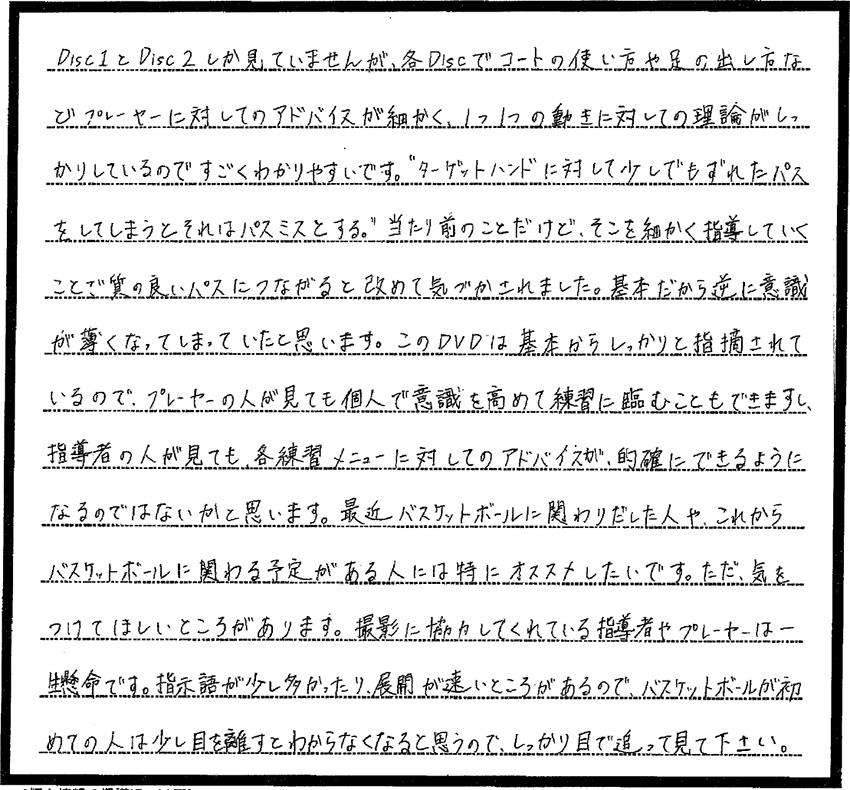 Disc1とDisc2しか見ていませんが、各Discでコートの使い方や足の出し方な
どプレーヤーに対してのアドバイスが細かく、1つ1つの動きに対しての理論がしっ
かりしているのですごくわかりやすいです。"ターゲットハンドに対して少しでもずれたパス
をしてしまうとそれはパスミスとする。"当たり前のことだけど、そこを細かく指導していく
ことで質の良いパスにつながると改めて気づかされました。基本だから逆に意識
が薄くなってしまっていたと思います。このDVDは基本からしっかりと指摘されて
いるので、プレーヤーの人が見ても個人で意識を高めて練習に臨むこともできますし、
指導者の人が見ても、各練習メニューに対してのアドバイスが、的確にできるように
なるのではないかと思います。最近バスケットボールに関わりだした人や、これから
バスケットボールに関わる予定がある人には特にオススメしたいです。ただ、気を
つけてほしいところがあります。撮影に協力してくれている指導者やプレーヤーは一
生懸命です。指示語が少し多かったり、展開が速いところがあるので、バスケットボールが初
めての人は少し目を離すとわからなくなると思うので、しっかり目で追って見て下さい。